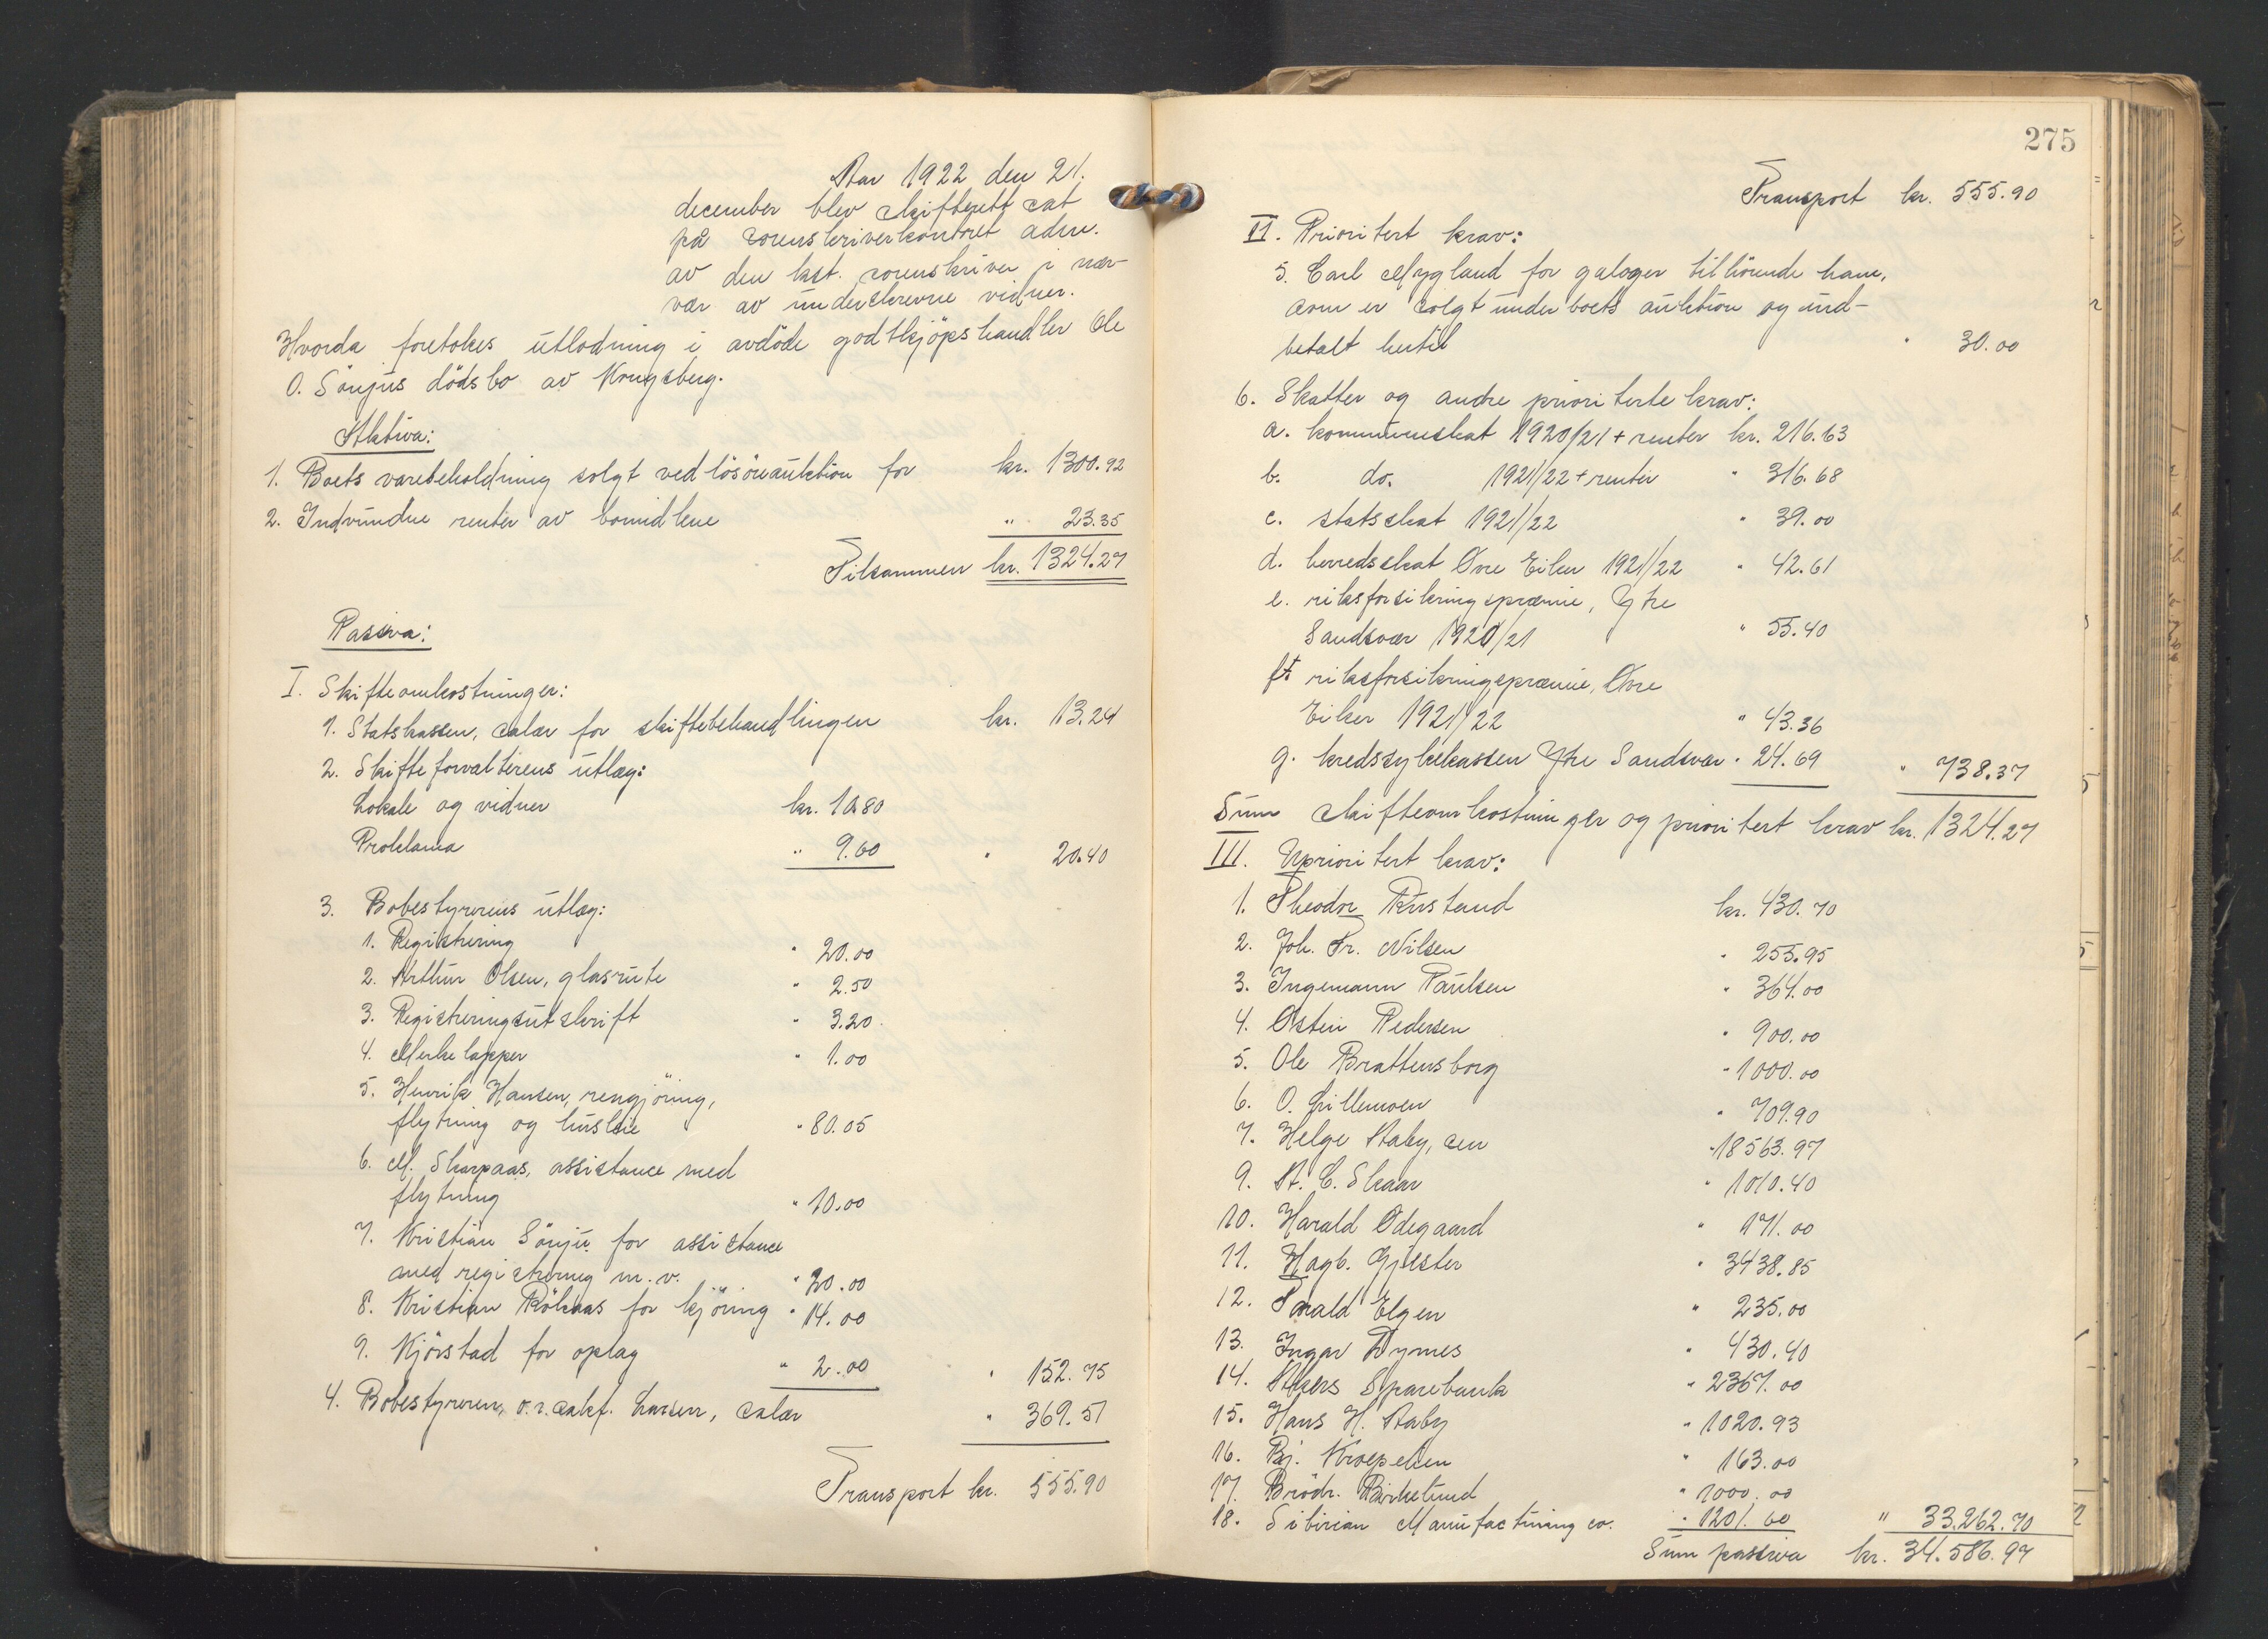 Aar 1922 den 21.
december blev skifterett sat
på sorenskriverkontoret adm.
av den kst. sorenskriver i nær-
vær av underskrevne vidner.
Hvorda foretokes utlodning i avdöde godtkjöpshandler Ole
O. Sönjus dödsbo av Kongsberg.
Aktiva:
1. Boets varebeholdning solgt ved lösöreauktion for kr. 1300.92
2. Indvundne renter av bomidlene " 23.35
Tilsammen kr. 1324.27
Passiva:
I. Skifteomkostninger:
1. Statskassen, salær for skiftebehandlingen kr. 13.24
2. Skifteforvalterens utlæg:
Lokale og vidner kr. 10.80
Proklama " 9.60 " 20.40
3. Bobestyrerens utlæg:
1. Registrering " 20.00
2. Arthur Olsen, glasrute " 2.50
3. Registreringsutskrift " 3.20
4. Merkelapper " 1.00
5. Henrik Hansen, rengjöring,
flytning og husleie " 80.05
6. M. Skarpaas, assistance med
flytning " 10.00
7. Kristian Sönju for assistance
med registrering m.v. " 20.00
8. Kristian Rölaas for kjöring " 14.00
9. Kjörstad for oplag " 2.00 " 152.75
4. Bobestyreren, o.r.sakf. Larsen, salær " 369.51
Transport kr. 555.90
275
Transport kr. 555.90
II. Prioritert krav:
5. Carl Mygland for galoger tilhörende ham,
som er solgt under boets auktion og ind-
betalt hertil " 30.00
6. Skatter og andre prioriterte krav:
a. kommuneskat 1920/21 + renter kr. 216.63
b. do. 1921/22 + renter " 316.68
c. statsskat 1921/22 " 39.00
d. herredsskat Øvre Eiker 1921/22 " 42.61
e. riksforsikringspræmie, Ytre
Sandsvær 1920/21 " 55.40
f. riksforsikringspræmie, Øvre
Eiker 1921/22 " 43.36
g. kredssykekassen Ytre Sandsvær " 24.69 " 738.37
Sum skifteomkostninger og prioritert krav kr. 1324.27
III. Uprioritert krav:
1. Theodor Rustand kr. 430.70
2. Joh. Fr. Nilsen " 255.95
3. Ingemann Paulsen " 364.00
4. Østen Pedersen " 900.00
5. Ole Brattensborg " 1000.00
6. O. Lillemoen " 709.90
7. Helge Staby, sen " 18563.97
9. A. C. Skaar " 1010.40
10. Harald Ödegaard " 171.00
11. Hagb. Gjester " 3438.85
12. Elgen " 235.00
13. Ingar Dymes " 430.40
14. Akers Sparebank " 2367.00
15. Hans H. Staby " 1020.93
16. Bj. Kroepelien " 163.00
17. Brödr. Birkelund " 1000.00
18. Sibirian Manufacturing co. " 1201.60 " 33.262.70
Sum passiva kr. 34.586.97